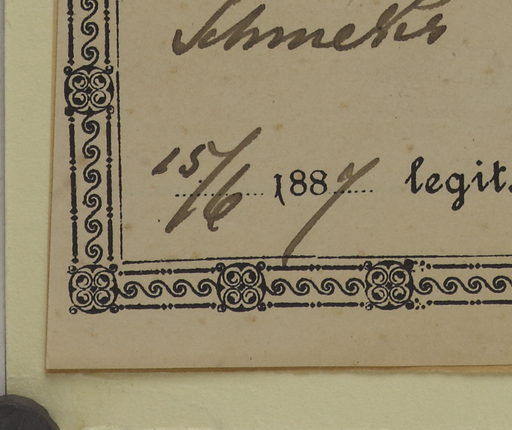 Schmeks
15/6 1887 legit.